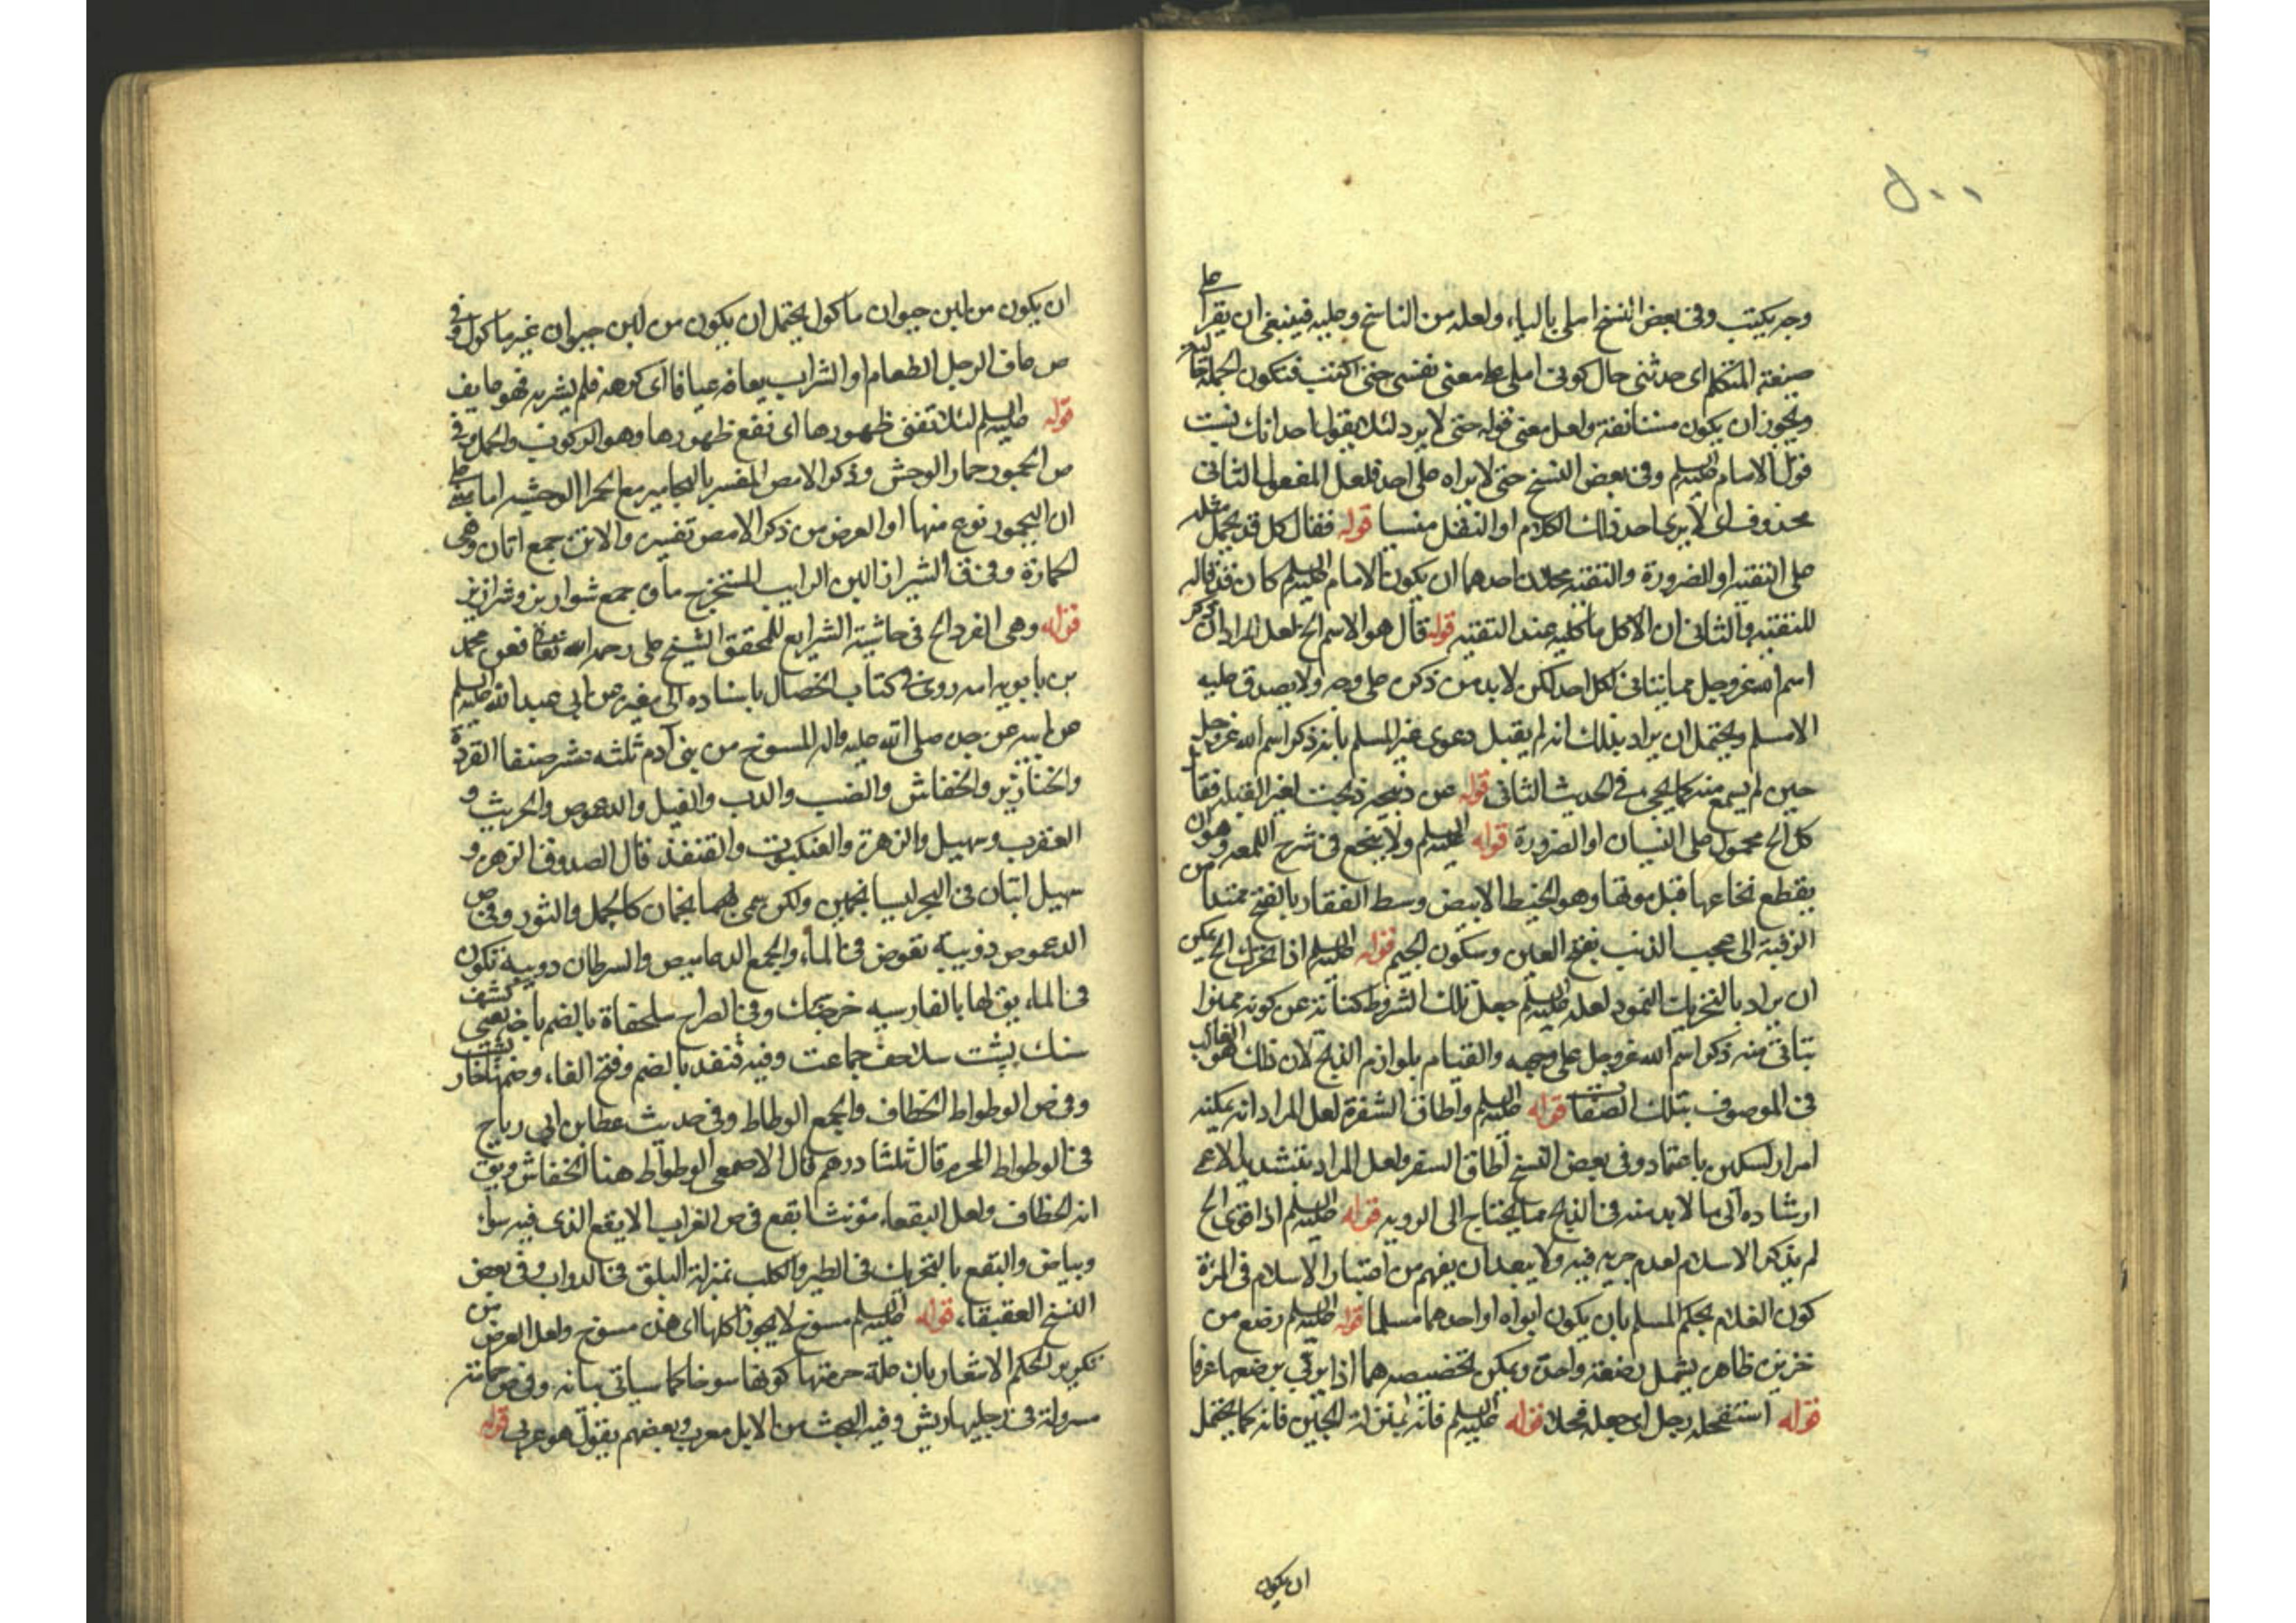 وجه يكتب وفى بعض النسخ املى بالياء ولعله من الناسخ وعليه فينبغى ان يقرأ على
صيغة المتكلم اى حدثنى حال كونى املى على معنى نفسى حتى اكتب فتكون الجملة
ويجوز ان يكون مستانفة ولعل معنى قوله حتى لا يرد لئلا يقول احد انك نسبت
قول الامام عليه السلم وفى بعض النسخ حتى لا يراه على احد فلعل المفعول الثانى
محذوف اى لا يرى احد ذلك الكلام او النقل منسيا قوله فقال كل قد يحمل مثله
على التقية او الضرورة والتقية احدهما ان يكون الامام عليه السلم كان قد قاله
للتقية والثانى ان الاكل ماكليه عند التقية قوله قال هو الاسم الخ لعل المراد ان ذكر
اسم الله عزوجل مما يتاتى لكل احد لكن لابد من ذكره على وجه ولا يصدق عليه
الا مسلم ويحتمل ان يراد بذلك انه لم يقبل دعوى غير المسلم بانه ذكر اسم الله عزوجل
حين لم يسمع منه كما يجىء فى الحديث الثانى قوله عن ذبيحة ذبحت لغير القبلة فقال
كل الخ محمول على النسيان او الضرورة قوله عليه السلم ولا ينخع فى شرح اللمعه وهو ان
يقطع نخاعها قبل موتها وهو الخيط الابيض وسط الفقار بالفتح ممتدا من
الرقبة الى عجب الذنب بفتح العين وسكون الجيم قوله عليه السلم اذا تحرك الخ يمكن
ان يراد بالتحريك النمو ولعله عليه السلم جعل تلك الشروط كناية عن كونه مميزا
يتاتى منه ذكر اسم الله عزوجل على وجهه والقيام بلوازم الذبح لان ذلك هو الغالب
فى الموصوف بتلك الصفات قوله عليه السلم واطاق الشفرة لعل المراد انه يمكنه
امرار السكين باعتماد وفى بعض النسخ اطاق السفر ولعل المراد
ارشاده الى ما لابد منه فى الذبح مما يحتاج الى الرويه قوله عليه السلم اذا قوى الخ
لم يذكر الاسلام لعدم حريه فيه ولا يبعد ان يفهم من اعتبار الاسلام فى المرئة
كون الغلام بحكم المسلم بان يكون ابواه او احدهما مسلما قوله عليه السلم رضع من
خنزيرة ظاهره يشمل رضعة واحدة ويمكن تخصيصه بما اذا بوقى برضعها عرفا
قوله استفحله رجل اى جعله فحلا قوله عليه السلم فانه بمنزلة الجبن فانه كما يحتمل
ان يكون
ان يكون من لبن حيوان ماكول يحتمل ان يكون من لبن حيوان غير ماكول قوله وفى
ص عاف الرجل الطعام او الشراب يعافه عيافا اى كرهه فلم يشربه فهو عايف
قوله عليه السلم لئلا تفنى ظهورها اى نفع ظهورها وهو الركوب والحمل وفى
ص اليحمور حمار الوحش وذكر الامص المفسر باليحامير مع الحمر الوحشيه اما مبنى على
ان اليحمور نوع منها او الغرض من ذكر الامص تفسيره والاتن جمع اتان وهى
الحمارة وفى ق الشيراز اللبن الرايب المستخرج ماؤه جمع شواريز وشراريز
قوله وهى القرد الخ فى حاشية الشرايع للمحقق الشيخ على رحمه الله تعالى فعن محمد
بن بابويه انه روى فى كتاب الخصال باسناده الى مغيره عن ابى عبد الله عليه السلم
عن ابيه عن جده صلى الله عليه واله المسوخ من بنى آدم ثلثه عشر صنفا القردة
والخنازير والخفاش والضب والدب والفيل والدعموص والجريث و
العقرب وسهيل والزهرة والعنكبوت والقنفذ قال الصدوق الزهره و
سهيل دابتان فى البحر ليسا نجمين ولكن سمى بهما نجمان كالحمل والثور وفى ص
الدعموص دويبة تغوص فى الماء والجمع الدعاميص والسرطان دويبة تكون
فى الماء يق لها بالفارسيه خرچنك وفى الصراح سلحفاة بالضم باخه يعنى كشف
سنك پشت سلاحف جماعت وفيه قنفذ بالضم وفتح الفاء وضمها خارپشت
وفى ص الوطواط الخطاف والجمع الوطاط وفى حديث عطا بن ابى رباح
فى الوطواط المحرم قال ثلثا درهم قال الاصمعى الوطواط هنا الخفاش ويق
انه الخطاف ولعل البقعاء مؤنث ابقع فى ص الغراب الابقع الذى فيه سواد
وبياض والبقع بالتحريك فى الطير والكلب بمنزلة البلق فى الدواب وفى بعض
النسخ العقيقاء قوله عليه السلم مسوخ لا يجوز اكلها اى هذه مسوخ ولعل الغرض من
تكرير الحكم الاشعار بان علة حرمتها كونها مسوخا كما سياتى بيانه وفى ص حمامة
مسرولة فى رجليها ريش وفيه البخت من الابل معرب وبعضهم يقول هو عربى قوله